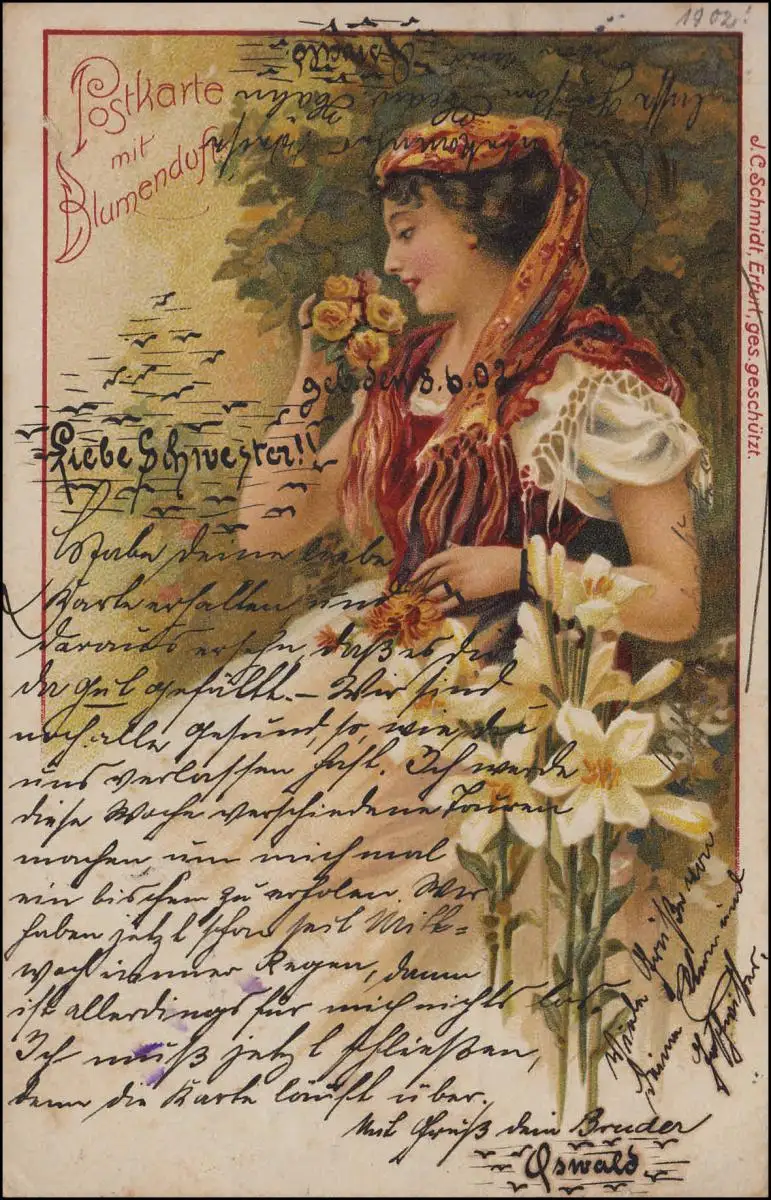 1902!
Postkarte
mit
Blumenduft
J.C. Schmidt, Erfurt, ges. geschützt.
geb. den 8.6.02
Liebe Schwester!!
Habe deine liebe
Karte erhalten und
daraus ersehn, daß es dir
da gut gefällt. – Wir sind
noch alle gesund, so, wie du
uns verlassen hast. Ich werde
diese Woche verschiedene Touren
machen um mich mal
ein bischen zu erholen. Wir
haben jetzt schon seit Mitt=
woch immer Regen, dann
ist allerdings für mich nichts los.
Ich muß jetzt schließen,
denn die Karte läuft über.
Mit Gruß dein Bruder
Oswald.
Viele Grüße von
deine Eltern und
Geschwister.
Oswald